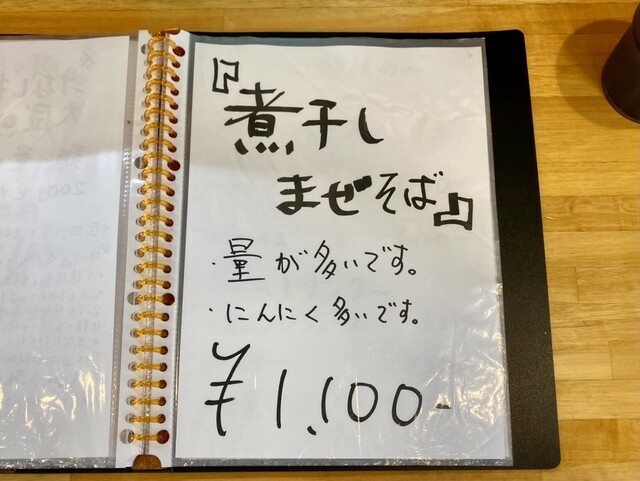 『煮干し
まぜそば』
・量が多いです。
・にんにく多いです。
¥1,100-